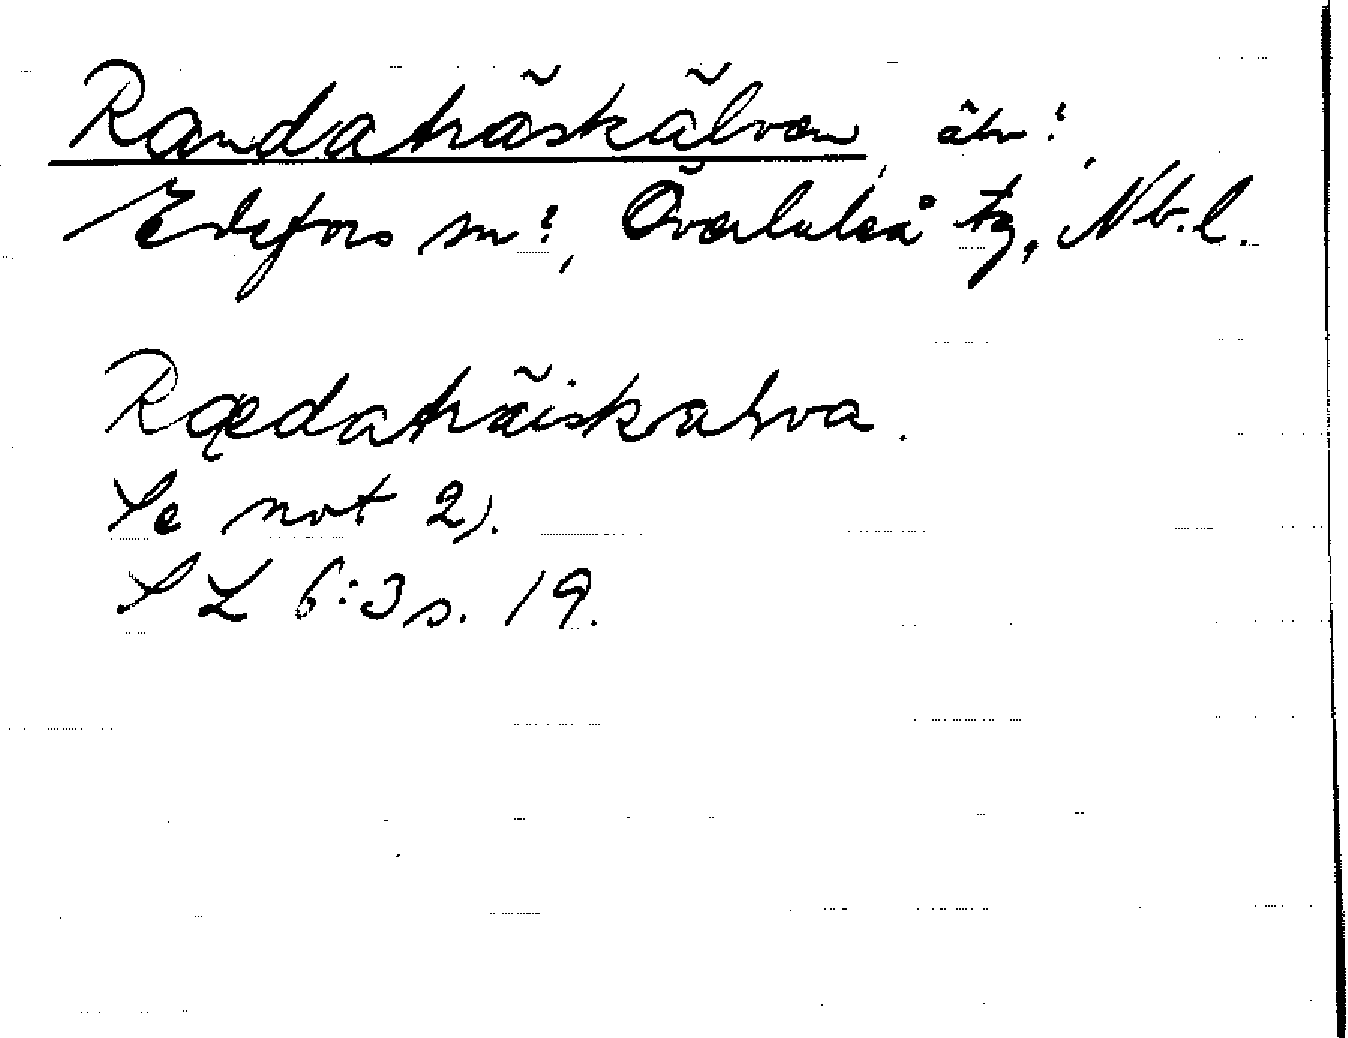 Randaträskälven, älv?,
Edefors sn?, Överluleå tg, Nb.l.
Rædaträiskælva.
Se not 2).
SL 6:3 s. 19.